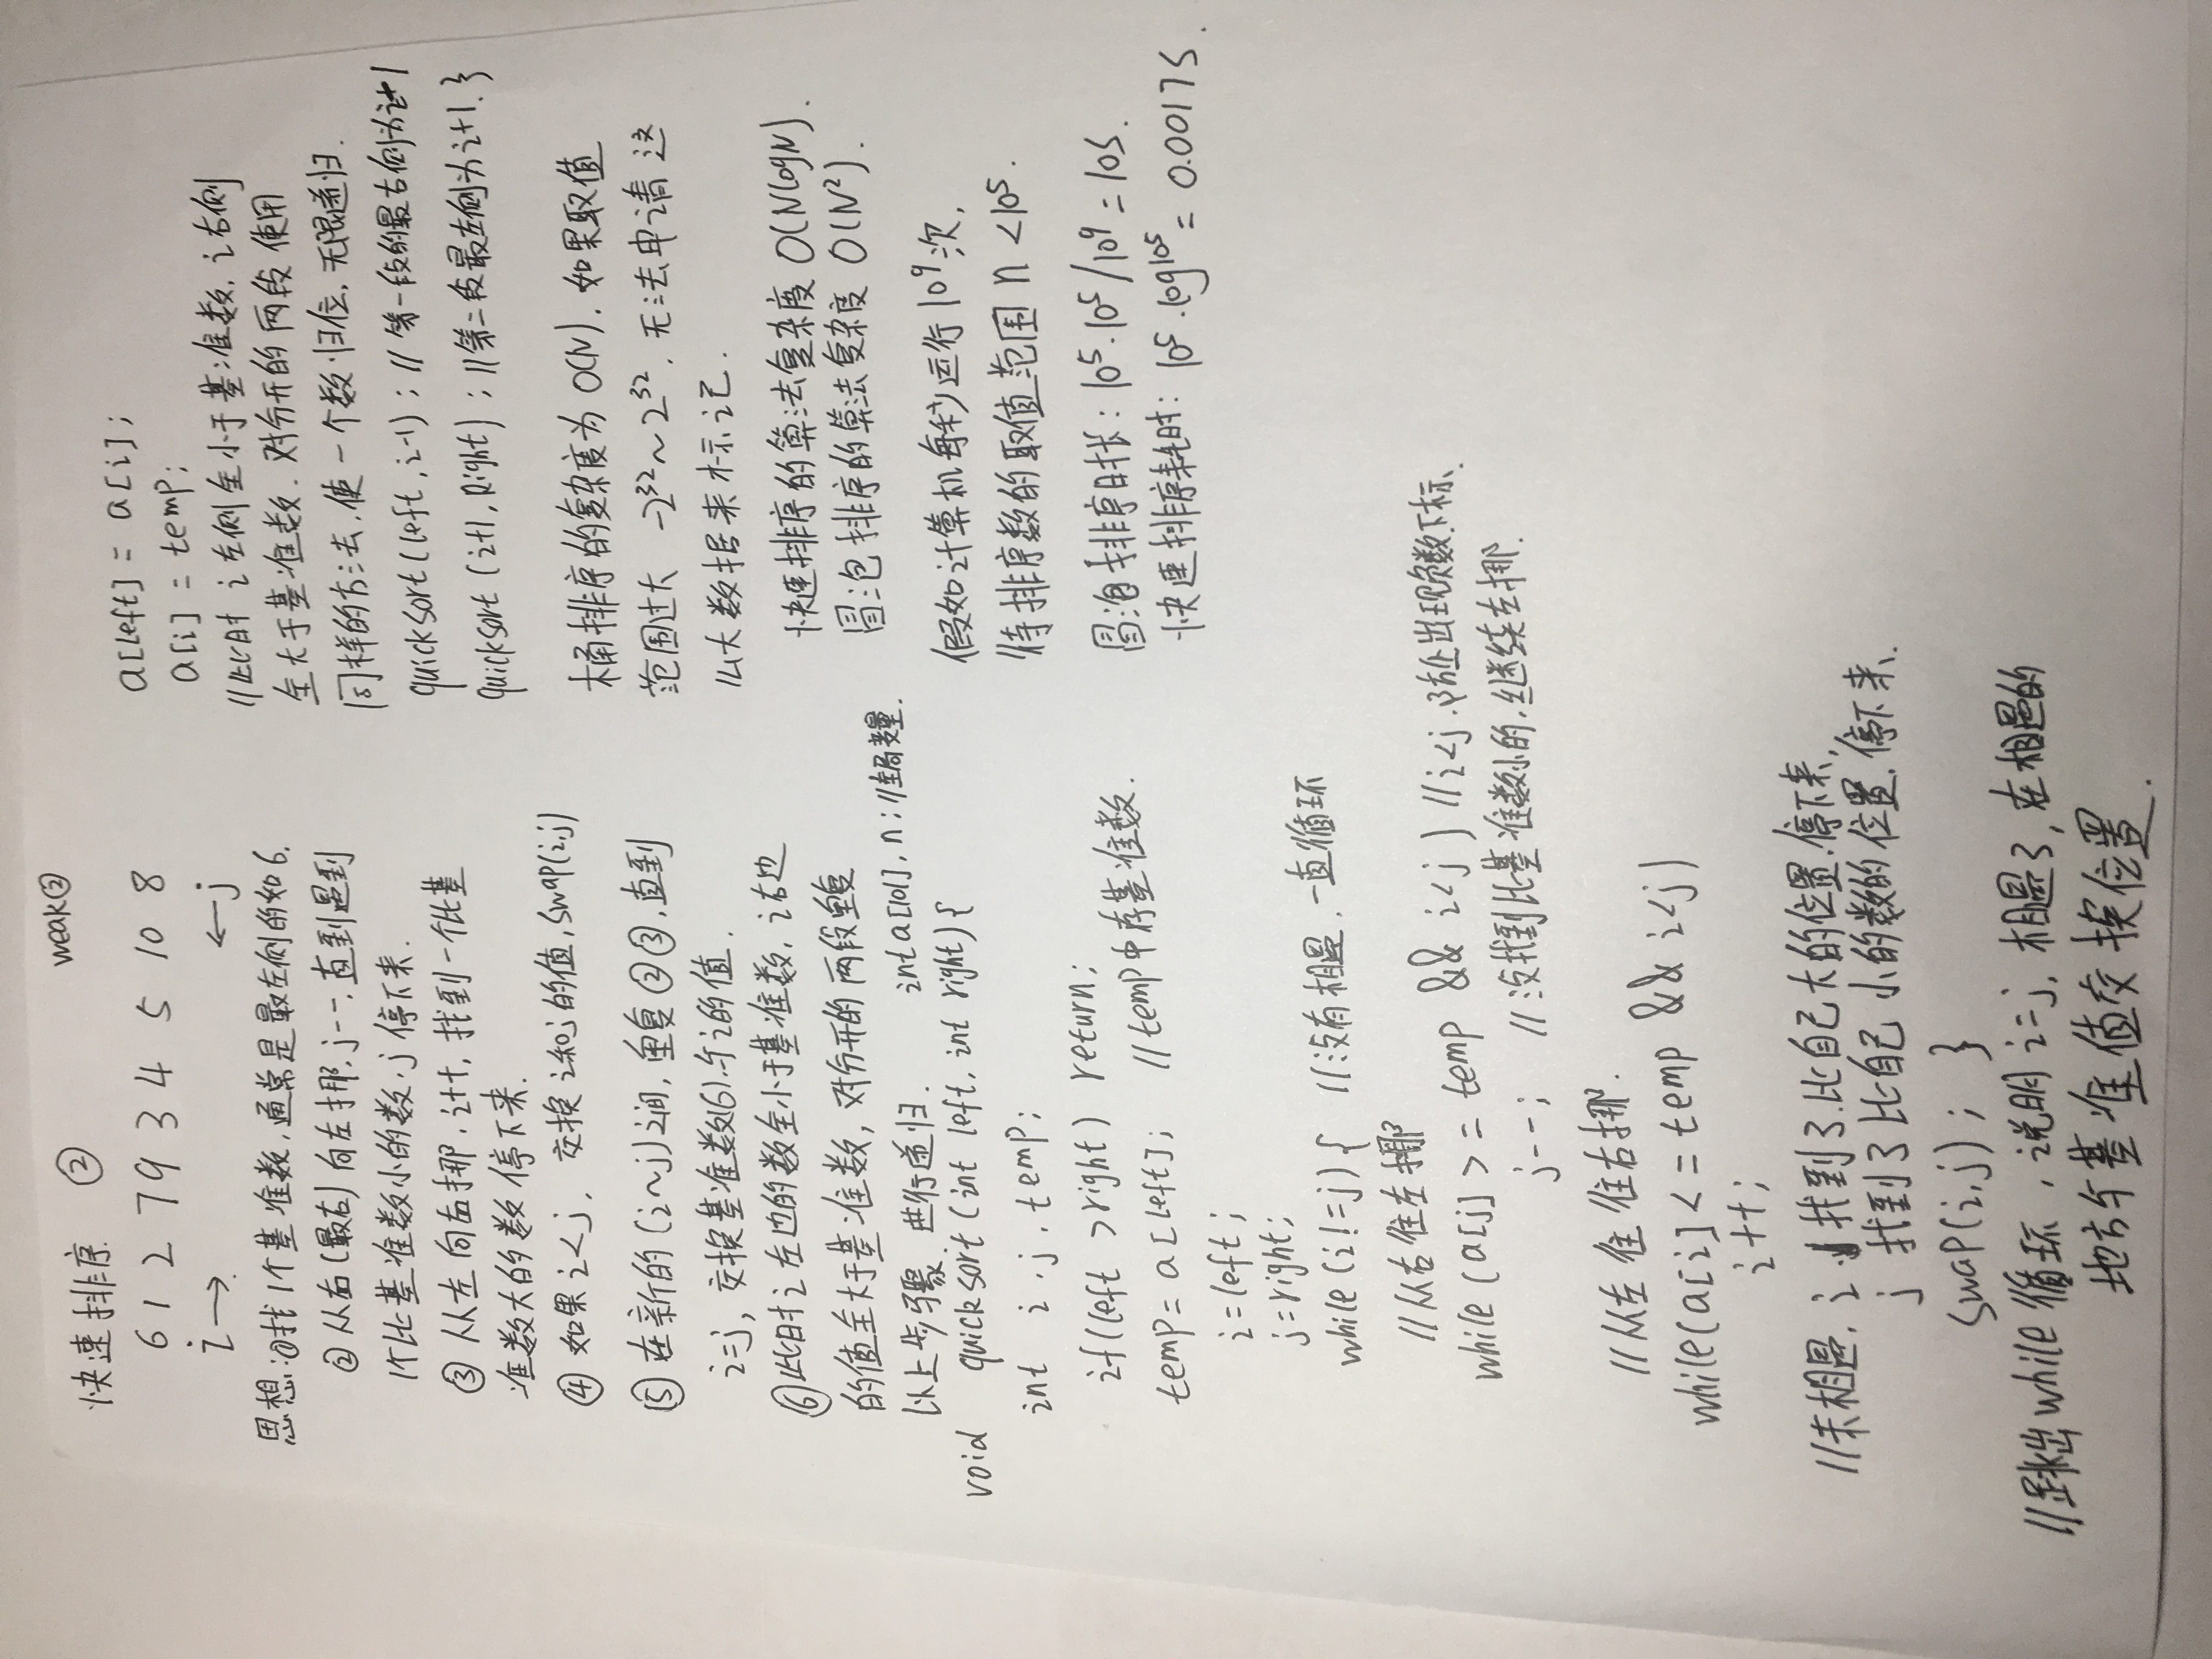 weak②
快速排序 ②
6 1 2 7 9 3 4 5 10 8
i→ ←j
思想:①找1个基准数,通常是最左侧的如6.
② 从右(最右)向左挪,j--,直到遇到
1个比基准数小的数,j停下来.
③ 从左向右挪,i++,找到一个比基
准数大的数停下来.
④ 如果i<j, 交换i和j的值,swap(i,j)
⑤ 在新的(i~j)之间,重复②③,直到
i=j, 交换基准数(6)与i的值.
⑥此时i左边的数全小于基准数,i右边
的值全大于基准数,对分开的两段重复
以上步骤,进行递归.
int a[101], n; //全局变量.
void quicksort(int left, int right){
int i, j, temp;
if(left >right) return;
temp= a[left]; //temp中存基准数.
i=left;
j=right;
while(i!=j){ //没有相遇,一直循环
//从右往左挪
while(a[j]>=temp && i<j) //i<j,防止出现负数下标、
j--; //没找到比基准数小的,继续左挪.
//从左往往右挪.
while(a[i]<=temp && i<j)
i++;
//未相遇, i 找到了比自己大的位置,停下来,
j 找到了比自己小的数的位置,停下来.
swap(i,j); }
//跳出while循环,说明i=j,相遇了,在相遇的
地方与基准值交换位置.
a[left]= a[i];
a[i] = temp;
//此时i左侧全小于基准数,i右侧
全大于基准数.对分开的两段使用
同样的方法,使一个数归位,无限递归.
quicksort(left,i-1); //第一段的最右侧为i-1
quicksort(i+1,Right); //第二段最左侧为i+1.}
桶排序的复杂度为O(N).如果取值
范围过大 -2³²~2³²,无法申请这
么大数据来标记.
快速排序的算法复杂度 O(NlogN).
冒泡排序的算法复杂度 O(N²).
假如计算机每秒运行10⁹次,
待排序数的取值范围n<10⁵.
冒泡排序时长:10⁵·10⁵/10⁹=10s.
快速排序耗时:10⁵·log10⁵=0.0017s.